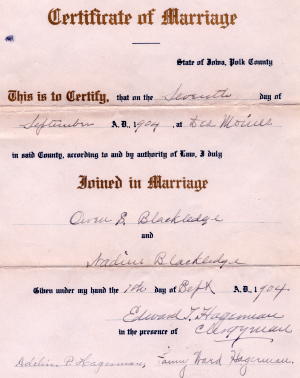 Certificate of Marriage
State of Iowa, Polk County
This is to Certify, that on the Seventh day of
September A.D., 1904, at Des Moines
in said County, according to and by authority of Law, I duly
Joined in Marriage
Owen E Blackledge
and
Nadine Blackledge
Given under my hand the day of Sept A.D., 1904
Edward T. Hagerman
Clergyman
in the presence of
Adeline P. Hagerman, Fanny Ward Hagerman.